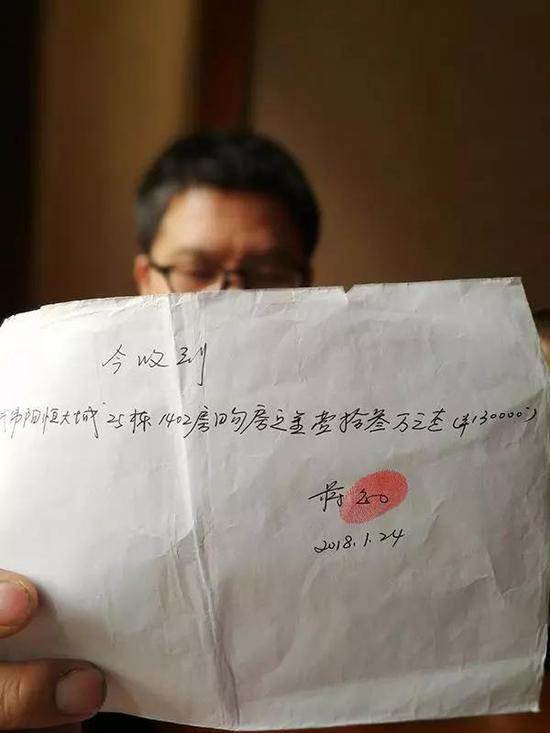 今收到
伟阳恒大城25栋1402房购房定金壹拾叁万元整(¥130000)
蒋
2018.1.24